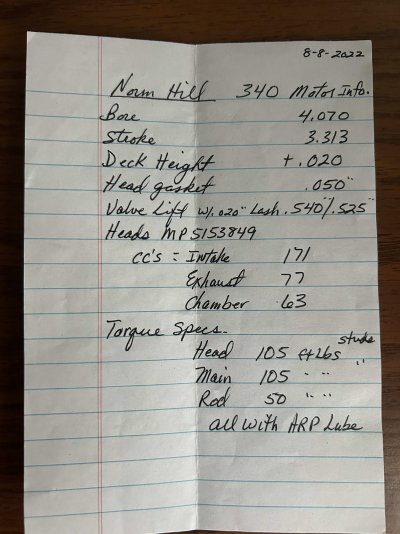 8-8-2022
Norm Hill 340 Motor Info.
Bore 4.070
Stroke 3.313
Deck Height +.020
Head gasket .050"
Valve Lift w/.020" Lash .540"/.525"
Heads MP5153849
cc's = Intake 171
Exhaust 77
Chamber 63
Torque Specs.
studs
Head 105 ft Lbs
Main 105 " " "
Rod 50 " "
all with ARP Lube